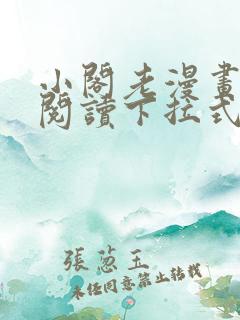 小閣老漫畫
閱讀下拉式
張蔥玉
未任同意禁止转载